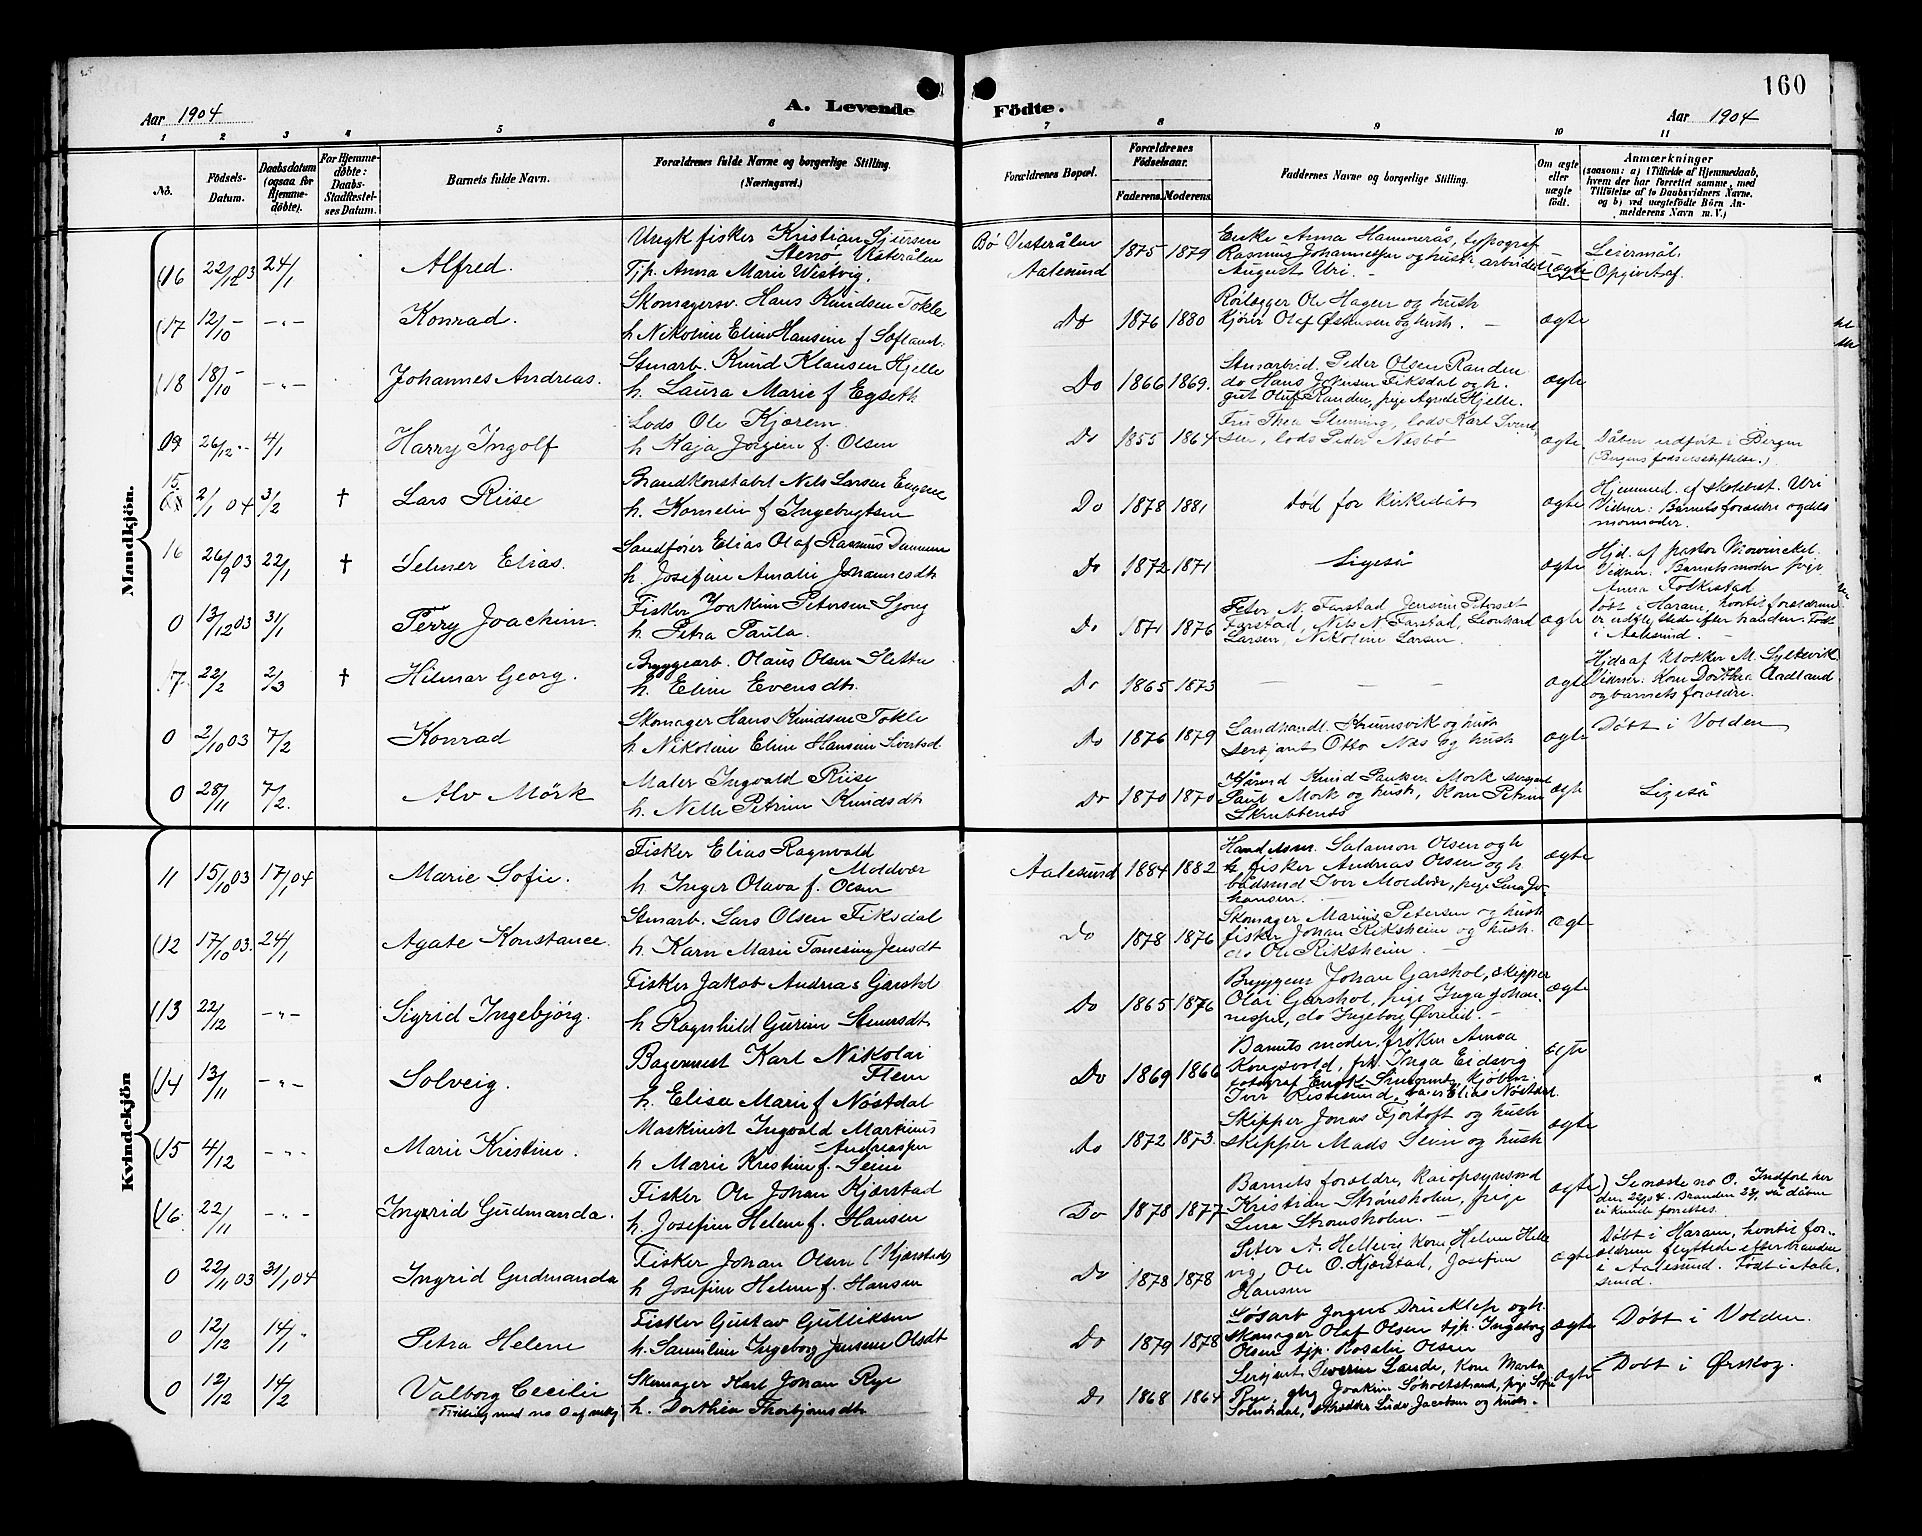 160
Aar 1904
A. Levende Födte.
Aar 1904
1 2 3 4 5 6 7 8 9 10 11
No.
Födsels-Datum.
Daabsdatum (ogsaa for Hjemme-døbte).
For Hjemme-døbte: Daabs-Stadfæstel-ses Datum.
Barnets fulde Navn.
Forældrenes fulde Navne og borgerlige Stilling.
(Næringsvei.)
Forældrenes Bopæl.
Forældrenes Födselsaar.
Faderens. Moderens.
Faddernes Navne og borgerlige Stilling.
Om ægte eller uægte født.
Anmærkninger
(saasom: a) i Tilfælde af Hjemmedaab, hvem der har forrettet samme, med Tilföielse af to Daabsvidners Navne, og b) ved uægtefødte Börn An-melderens Navn m. V.)
Mandkjön.
16 22/12 03 24/1 Alfred.
Ungk fisker Kristian Sjursen
Steno Vesterålen
Tjp. Anna Marie Westvig.
Bø Vesterålen
Aalesund
1875 1879
Enke Anna Hammerås, typograf
Rasmus Johannessen og hust. arbeider
August Uri. —
uægte
Leiermål.
Opgivet af
17 12/10 – –"– Konrad.
Skomagersv. Hans Knudsen Tokle
h Nikoline Eline Hansine f Søfland.
Do 1876 1880
Rørlægger Ole Hagen og hush
kjører Olaf Øskensen og hush. —
ægte
18 18/10 – –"– Johannes Andreas.
Stenarb. Knud Klausen Hjelle
h. Laura Marie f Egseth
Do 1866 1869.
Stenarbeid. Peder Olsen Randen
do Hans Johnsen Fiksdal og h.
gut Oluf Randen, pige Agnete Hjelle.
ægte
09 26/12 – 4/1 Harry Ingolf
Lods Ole Kjærem
h Kaja Jørgine f. Olsen
Do 1855 1864
Fru Thea Flemming, lods Karl Svend
sen, lods Peder Nesbø
ægte
Dåben udført i Bergen
(Bergens fødselsstiftelse.)
15. 2/1 04 3/2 † Lars Riise
Brandkonstabel Nils Larsen Engene
h. Kornelie f Ingebrigtsen
Do 1878 1881
død før kirkedåb
ægte
Hjemmed. af skolebest. Uri
Vidner: Barnets forældre og dets
mormoder.
16 26/9 03 22/1 † Selmer Elias.
Sandfører Elias Olaf Rasmus
h. Josefine Amalie Johannesdt
Do 1872 1871
Ligeså
ægte
Hjd. af pastor Mowinckel.
Vidner: Barnets moder pige
Anna Folkestad
0 13/12 03 31/1 Perry Joachim.
Fisker Joakim Petersen Sjong
h. Petra Paula.
Do 1871 1876
Peter N. Farstad, Jensine Petersdt
Farstad, Nels N Farstad, Leonhard
Larsen, Nikoline Larsen.
ægte
Døbt i Haram, hvortil forældrene
er udflyttede efter branden. Født
i Aalesund.
17. 22/2 2/3 † Hilmar Georg.
Bryggearb. Olaus Olsen Slette
h. Eline Evensdt.
Do 1865 1873
— — —
ægte
Hjd. af klokker M. Syltevik
Vidner: Kone Dorthea Aadland
og barnets forældre.
0 2/10 03 7/2 Konrad
Skomager Hans Knudsen Tokle
h Nikoline Eline Hansine Sivertsd.
do 1876 1879
Landhandl. og hush
Sersjant Otto Næs og hush
ægte
Døbt i Volden
0 28/11 7/2. Alv Mörk
Maler Ingvald Riise
h. Nelle Petrine Knudsdt
Do 1870 1870
Gårmd Knud Mork sersjant
Paul Mork og hush, Kone Petrine
ægte
Ligeså
Kvindekjön
11 15/10 03 17/1 04 Marie Sofie.
Fisker Elias Ragnvald
Moldvær
h Inger Olava f. Olsen
Aalesund 1884 1882
Handelsm. Salamon Olsen og h
h, fisker Andreas Olsen og h
bådsmd Iver Moldvær, pige Lina Jo-
hansen. —
ægte
12 17/10 03. 24/1 Agate Konstance.
Stenarb. Lars Olsen Fiksdal
h. Karn Marie Jensdt
Do 1878 1876
Skomager Marius Petersen og hush
fisker Johan Riksheim og hush.
do Ole Riksheim —
ægte
13 22/12 –"– Sigrid Ingebjörg.
Fisker Jakob Andreas Garshol
h Ragnhild Gurine Stenersdt
Do 1865 1876
Byggem. Johan Garshol, skipper
Olai Garshol, pige Inga Johan-
nessen, do Ingeborg Øvrelid. —
ægte
14 13/11 –"– Solveig.
Bagermest Karl Nikolai
Flem
h. Elise Marie f Nöstdal
Do 1869 1866
Barnets moder, frøken Anna
Kongsvold, frk Inga Eidsvig
fotograf kjøbm.
Iver Ristesund, Elias Nøstdal.
ægte
15 4/12 –"– Marie Kristine.
Maskinist Ingvald Markinus
Andreassen
h Marie Kristine f. Seim
do 1872 1873.
Skipper Jonas Fjörtoft og hush
skipper Mads Seim og hush
ægte
16. 22/11 –"– Ingrid Gudmanda.
Fisker Ole Johan Kjærstad
h. Josefine Helene f. Hansen
Do 1878 1877
Barnets forældre, kaiopsynsmd
Kristian Strømsholm, pige
Lina Strømsholm. —
ægte
) Seneste no 0. Indført her
den 22/1 04. Branden 23/1 så dåben
ei kunde forrettes.
0 22/11 03 31/1 04 Ingrid Gudmanda
Fisker Johan Olsen (Kjærstad)
h Josefine Helene f. Hansen
Do 1878 1878
Peter A. Hellevig kone Helene Helle
vig, Ole O. Kjærstad, Josefine
Hansen
ægte
Døbt i Haram, hvortil for-
ældrene flyttede efter branden
i Aalesund. Født i Aale-
sund.
0 12/12 14/1 " Petra Helene
Fisker Gustav Gulliksen
h. Samuline Ingeborg Jensine Olsdt
Do 1879 1878
Løsarb Jørgen og h.
skomager Olaf Olsen tjp. Ingeborg
Olsen tjp. Rosalie Olsen
ægte
Døbt i Volden.
0 12/12 14/2 Valborg Cecilie
Tvilling med no 0 af mkj
Skomager Karl Johan Rye
h. Dorthea Thorbjørnsdt
Do 1868 1864
Sersjant Severin Lande, kone Marta
Rye, gbg Joakim Søholtstrand, pige Sofie
Solnørdal, skrædder Jacobsen og hush.
ægte
Døbt i Ørskog.